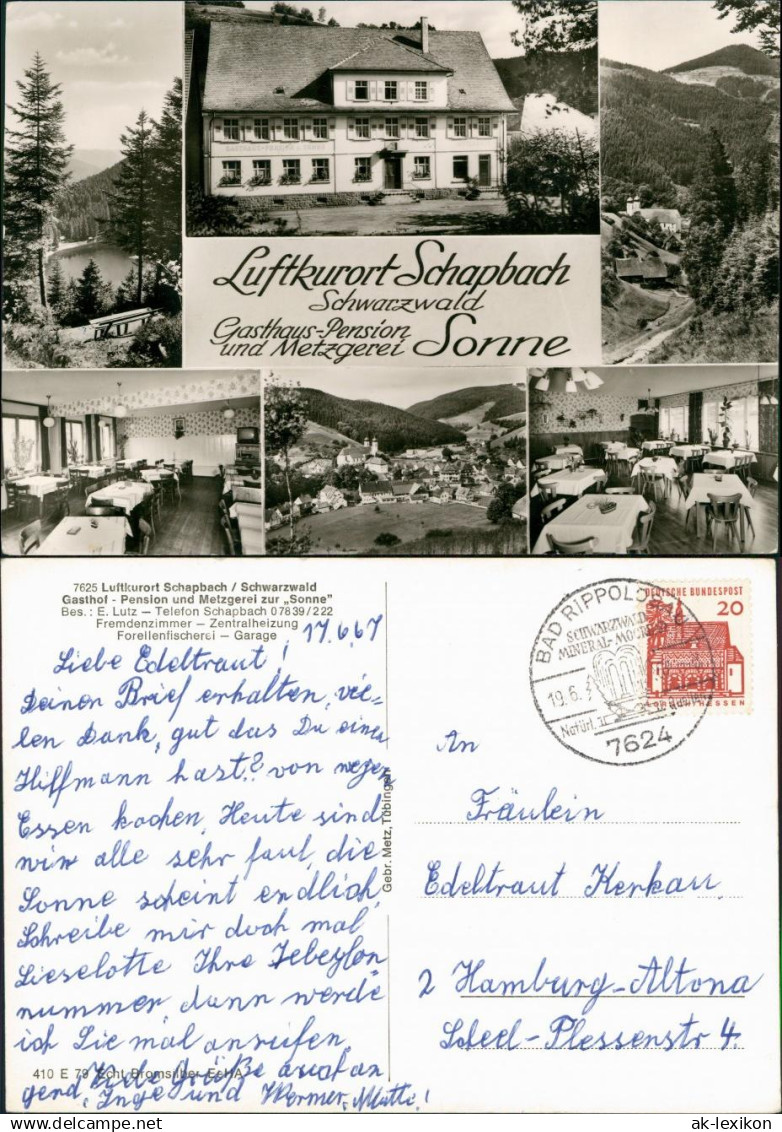 GASTHAUS-PENSION z. SONNE
Luftkurort Schapbach
Schwarzwald
Gasthaus-Pension
und Metzgerei Sonne
7625 Luftkurort Schapbach / Schwarzwald
Gasthof - Pension und Metzgerei zur „Sonne"
Bes.: E. Lutz — Telefon Schapbach 07839/222
Fremdenzimmer — Zentralheizung
Forellenfischerei — Garage
17.6.67
Liebe Edeltraut!
Deinen Brief erhalten, vie-
len Dank, gut das Du einen
Hilfmann hast? von wegen
Essen kochen, Heute sind
wir alle sehr faul, die
Sonne scheint endlich,
Schreibe mir doch mal
Lieselotte Ihre
nummer, dann werde
ich Sie mal anrufen,
Liebe Grüße auch an
gend, Inge und Werner, Mutti!
410 E 79 Echt Bromsilber
Gebr. Metz, Tübingen
BAD RIPPOLDSAU
SCHWARZWALD
MINERAL-MOORBAD
19.6.
Natürl.
7624
DEUTSCHE BUNDESPOST
20
An
Fräulein
Edeltraut Kerkau
2 Hamburg-Altona
Scheel-Plessenstr 4.
ak-lexikon